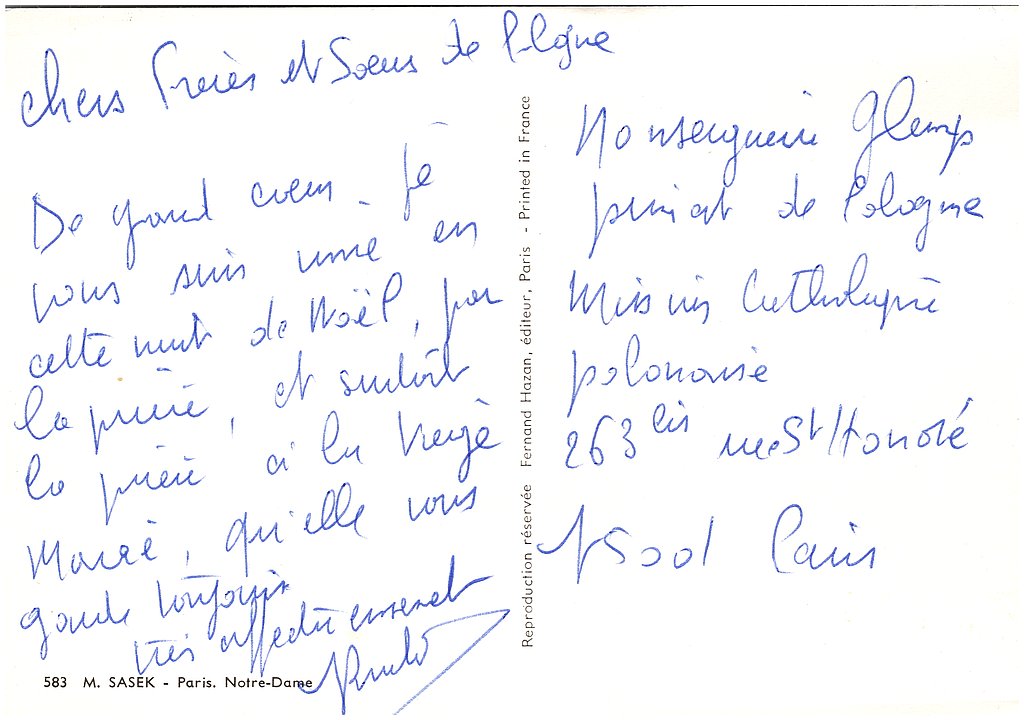 Chers Frères et Soeurs de Pologne
De grand coeur. je
vous suis unie en
cette nuit de Noël, par
la prière, et surtout
la prière à la Vierge
Marie, qu'elle vous
garde toujours
très affectueusement
583 M. SASEK - Paris. Notre-Dame
Reproduction réservée Fernand Hazan, éditeur, Paris - Printed in France
Monseigneur Glemp
primat de Pologne
Mission Catholique
polonaise
263 bis rue St Honoré
75001 Paris